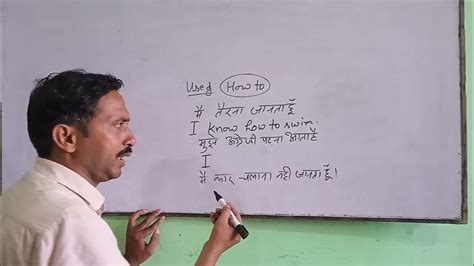 Used How to
मैं तैरना जानता हूँ
I know how to swim.
मुझे अंग्रेजी पढ़ना आता है
I
मैं कार चलाना नहीं जानता हूँ।